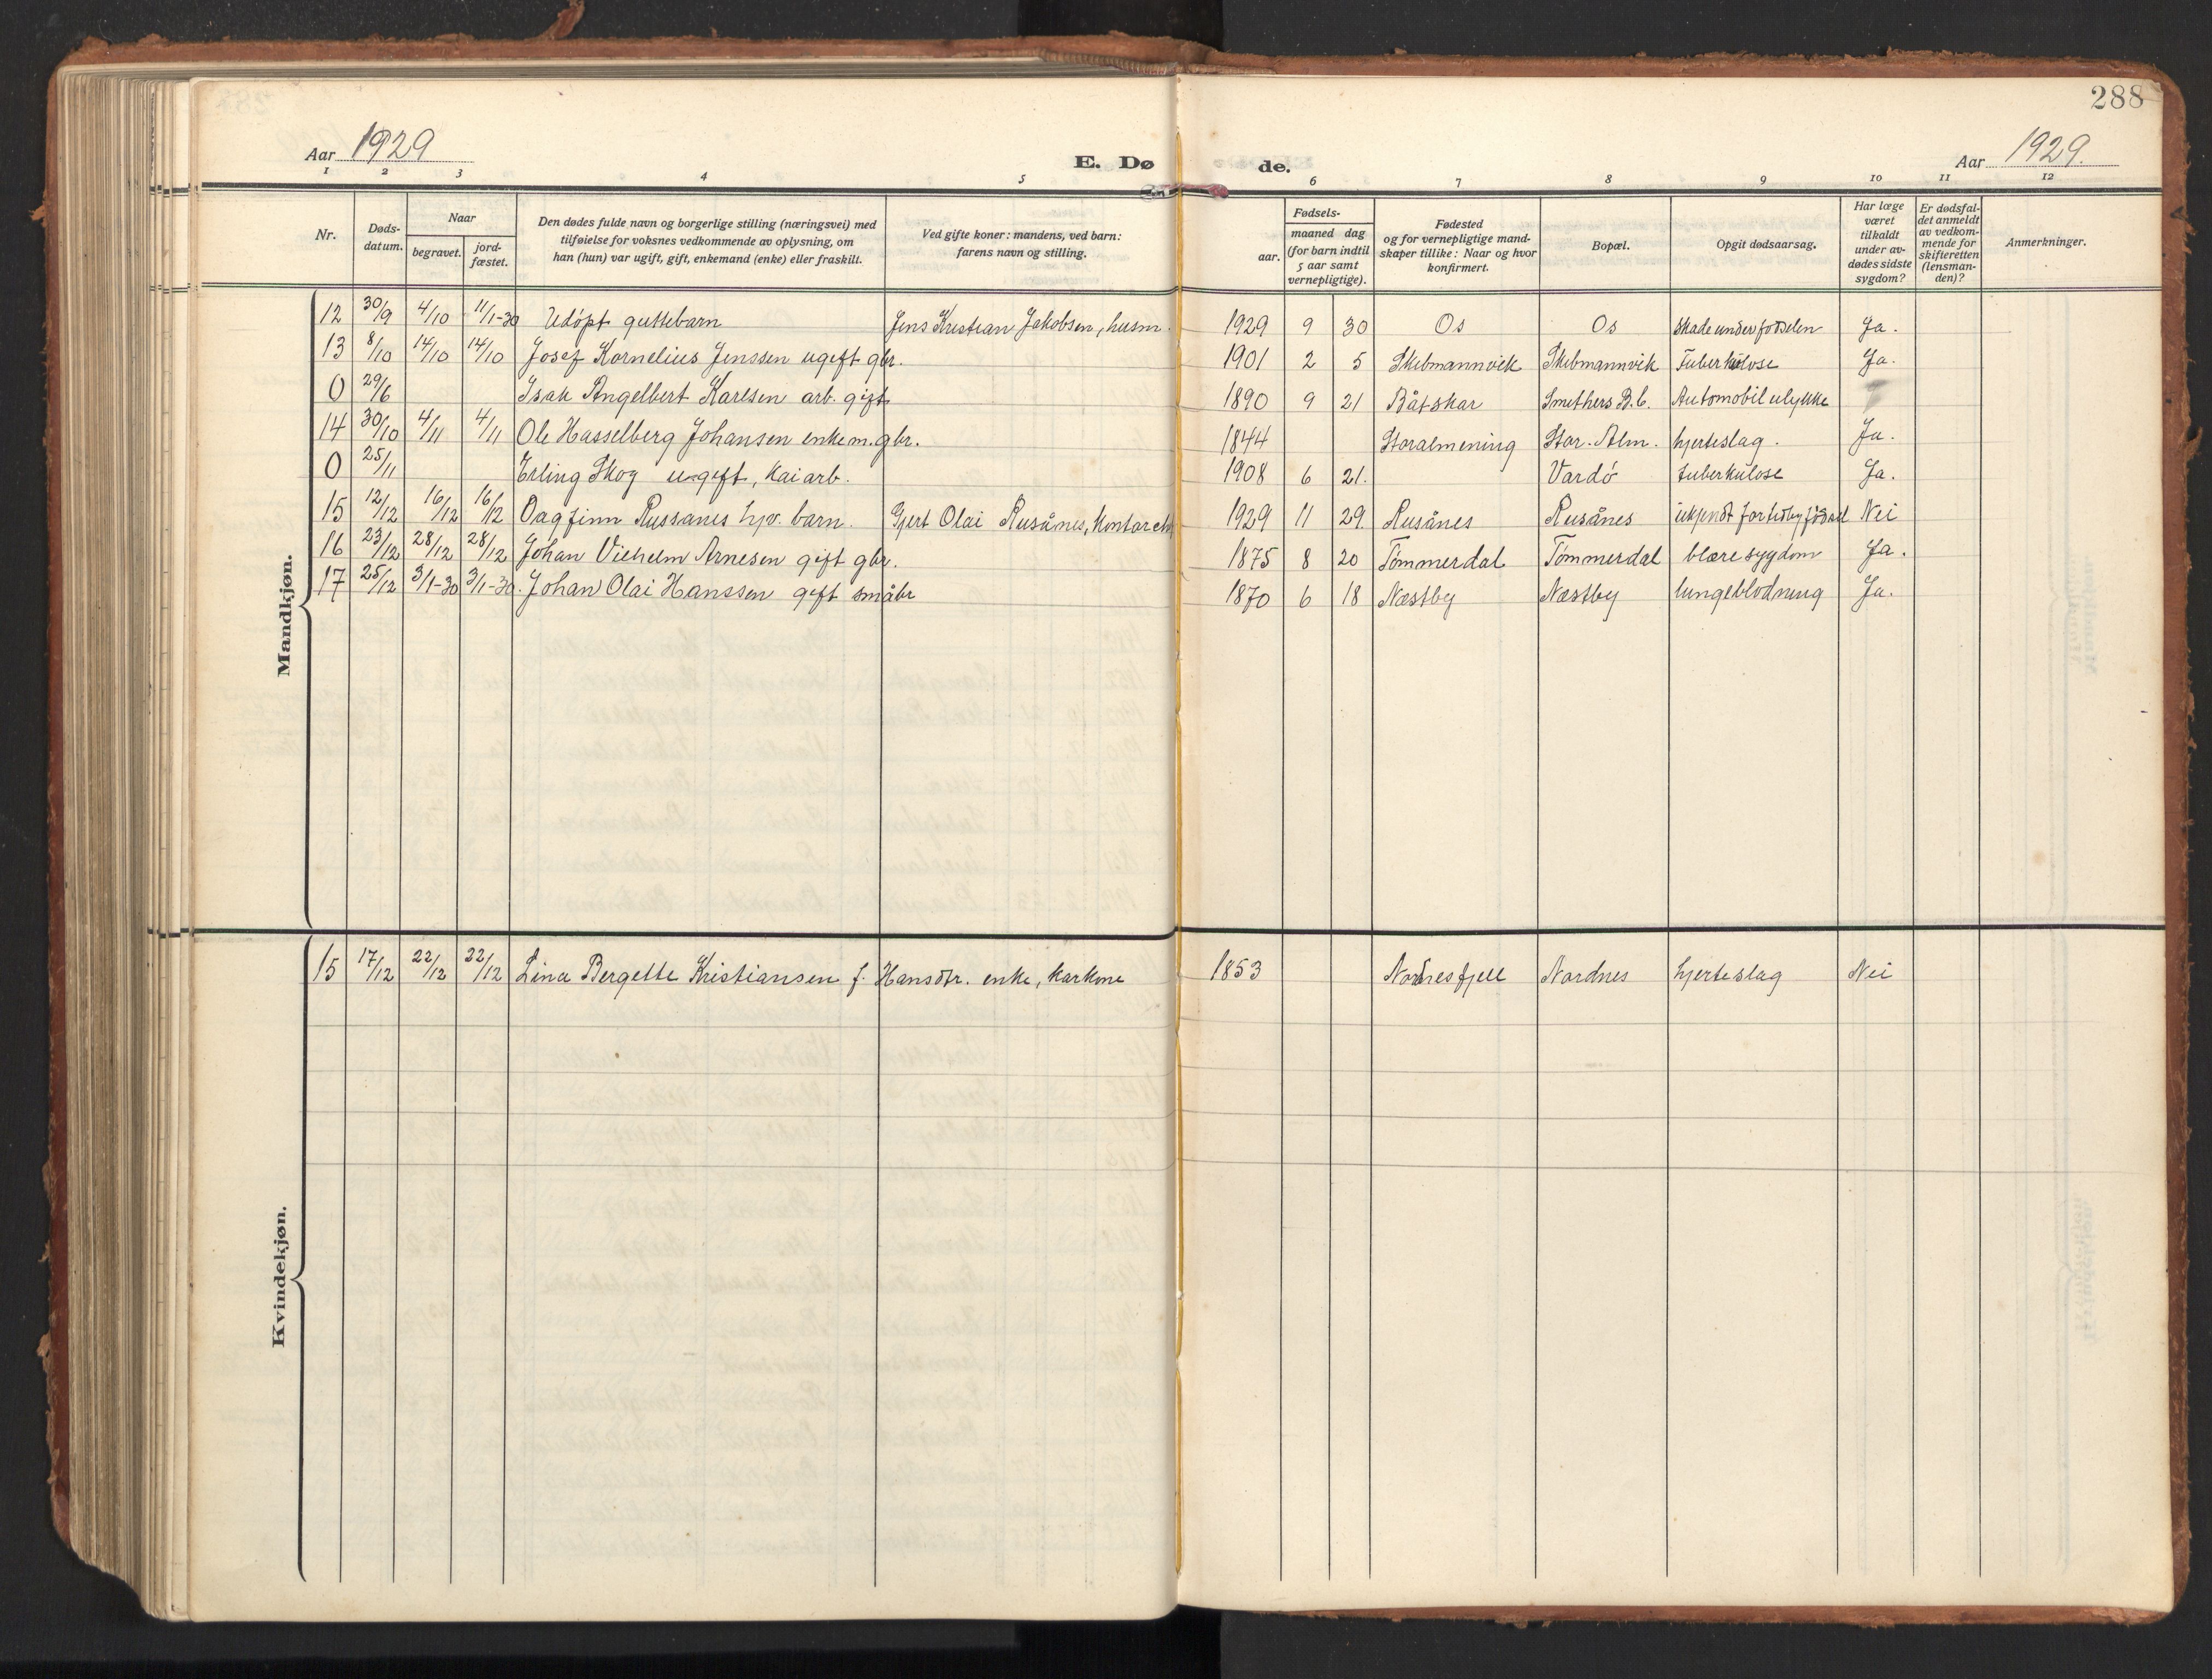 288
Aar 1929 E. Dø de. Aar 1929.
1 2 3 4 5 6 7 8 9 10 11 12
Nr.
Døds-
datum.
Naar
begravet.
jord-
fæstet.
Den dødes fulde navn og borgerlige stilling (næringsvei) med
tilføielse for voksnes vedkommende av oplysning, om
han (hun) var ugift, gift, enkemand (enke) eller fraskilt.
Ved gifte koner: mandens, ved barn:
farens navn og stilling.
Fødsels-
aar. maaned dag
(for barn indtil
5 aar samt
vernepligtige).
Fødested
og for vernepligtige mand-
skaper tillike: Naar og hvor
konfirmert.
Bopæl.
Opgit dødsaarsag.
Har læge
været
tilkaldt
under av-
dødes sidste
sygdom?
Er dødsfal-
det anmeldt
av vedkom-
mende for
skifteretten
(lensman-
den)?
Anmerkninger.
Mandkjøn.
12 30/9 4/10 11/1-30 Udöpt guttebarn Jens Kristian Jakobsen, husm. 1929 9 30 Os Os skade under fødselen Ja.
13 8/10 14/10 14/10 Josef Kornelius Jenssen ugift gbr. 1901 2 5 Skebmannvik Skebmannvik Tuberkulose Ja.
0 29/6 Isak Angelbert Karlsen arb. gift 1890 9 21 Båtskar Smithers B.C. Automobilulykke
14 30/10 4/11 4/11 Ole Hasselberg Johansen enkem. gbr. 1844 Storalmening Stor. Alm. hjerteslag. Ja.
0 25/11 Erling Skog ugift, kaiarb. 1908 6 21. Vardö tuberkulose Ja.
15 12/12 16/12 16/12 Dagfinn Russanes hjv. barn. Gjert Olai Rusånes, 1929 11 29. Rusånes Rusånes ukjendt for tidlig fødsel Nei
16 23/12 28/12 28/12 Johan Vilhelm Arnesen gift gbr. 1875 8 20 Tömmerdal Tömmerdal blæresygdom Ja.
17 25/12 3/1-30 3/1-30. Johan Olai Hanssen gift småbr 1870 6 18 Næstby Næstby lungeblødning Ja.
Kvindekjøn.
15 17/12 22/12 22/12 Lina Bergette Kristiansen f. Hansdtr. enke, karkone 1853 Nordnesfjell Nordnes hjerteslag Nei